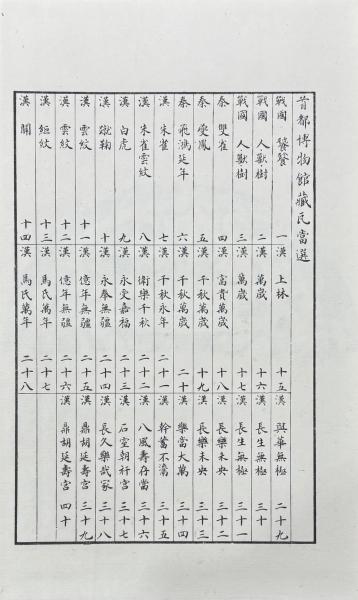 首都博物館藏瓦當選
戰國 饕餮 一
戰國 人獸樹 二
戰國 人獸樹 三
秦 雙雀 四
秦 夔鳳 五
秦 飛鴻延年 六
漢 朱雀 七
漢 朱雀雲紋 八
漢 白虎 九
漢 蹴鞠 十
漢 雲紋 十一
漢 雲紋 十二
漢 絙紋 十三
漢 關 十四
漢 上林 十五
漢 萬歲 十六
漢 萬歲 十七
漢 富貴萬歲 十八
漢 千秋萬歲 十九
漢 千秋萬歲 二十
漢 千秋永年 二十一
漢 衛樂千秋 二十二
漢 永受嘉福 二十三
漢 永奉無疆 二十四
漢 億年無疆 二十五
漢 億年無疆 二十六
漢 馬氏萬年 二十七
漢 馬氏萬年 二十八
漢 與華無極 二十九
漢 長生無極 三十
漢 長生無極 三十一
漢 長樂未央 三十二
漢 長樂未央 三十三
漢 樂當大萬 三十四
漢 幹蓄不瀉 三十五
漢 八風壽存當 三十六
漢 石室朝祠宮 三十七
漢 長久樂哉冢 三十八
漢 鼎胡延壽宮 三十九
漢 鼎胡延壽宮 四十